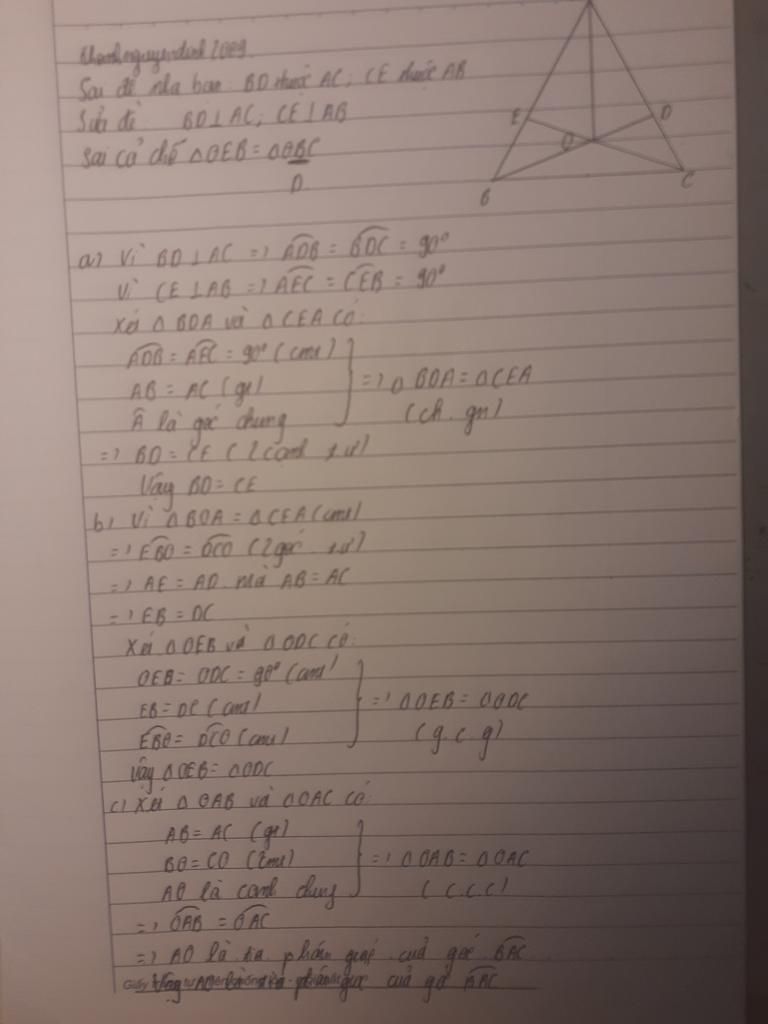 Khanhnguyendinh2009
Sai đề nha bạn: BD thuộc AC; CE thuộc AB
Sửa đề BD⊥AC; CE⊥AB
Sai cả chỗ ΔOEB = ΔOBC
D
E
D
O
B
C
a) Vì BD⊥AC => ADB = BDC = 90°
Vì CE⊥AB => AEC = CEB = 90°
Xét Δ BDA và Δ CEA có:
ADB = AEC = 90° (cmt)
AB = AC (gt)
Â là góc chung
=> Δ BDA = ΔCEA
(ch. gn)
=> BD = CE (2 cạnh t.ư)
Vậy BD = CE
b) Vì ΔBDA = ΔCEA (cmt)
=> EBO = DCO (2 góc t.ư)
=> AE = AD mà AB = AC
=> EB = DC
Xét ΔOEB và ΔODC có:
OEB = ODC = 90° (cmt)
EB = DC (cmt)
EBO = DCO (cmt)
=> ΔOEB = ΔODC
(g.c.g)
Vậy ΔOEB = ΔODC
c) Xét Δ OAB và ΔOAC có:
AB = AC (gt)
BO = CO (cmt)
AO là cạnh chung
=> ΔOAB = ΔOAC
(c.c.c)
=> OAB = OAC
=> AO là tia phân giác của góc BAC
Vậy AO là tia phân giác của góc BAC